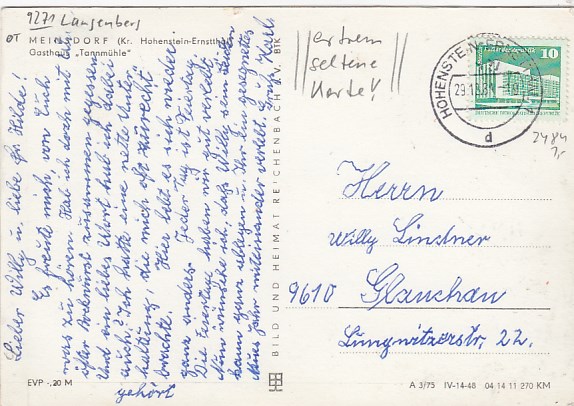 9271 Langenberg
OT MEINSDORF (Kr. Hohenstein-Ernstthal)
Gasthaus „Tannmühle"
Lieber Willy u. liebe Fr. Hilde!
Es freute mich, von Euch
was zu hören. Hab ich doch mit Euch
öfter Bockwurst zusammen gegessen
Und ein liebes Wort hab ich dabei
auch? Ich hatte eine nette Unter-
haltung, die mich oft zurecht
brachte. Hier lebt es sich wieder
ganz anders. Jeder Tag ist Feiertag.
Die Feiertage haben wir gut verlebt
Nun wünsche ich, daß Willy sein
kann ganz ablegen u. Ihr ein gesegnetes
Neues Jahr miteinander verlebt. Karl
gehört
EVP -,20 M
BILD UND HEIMAT REICHENBACH i. V. BTK
extrem
seltene
Karte!
HOHENSTEIN-ERNSTTHAL
d
10
DEUTSCHE DEMOKRATISCHE REPUBLIK
2484
7,-
Herrn
Willy Lindner
9610 Glauchau
Lungwitzerstr. 22.
A 3/75 IV-14-48 04 14 11 270 KM